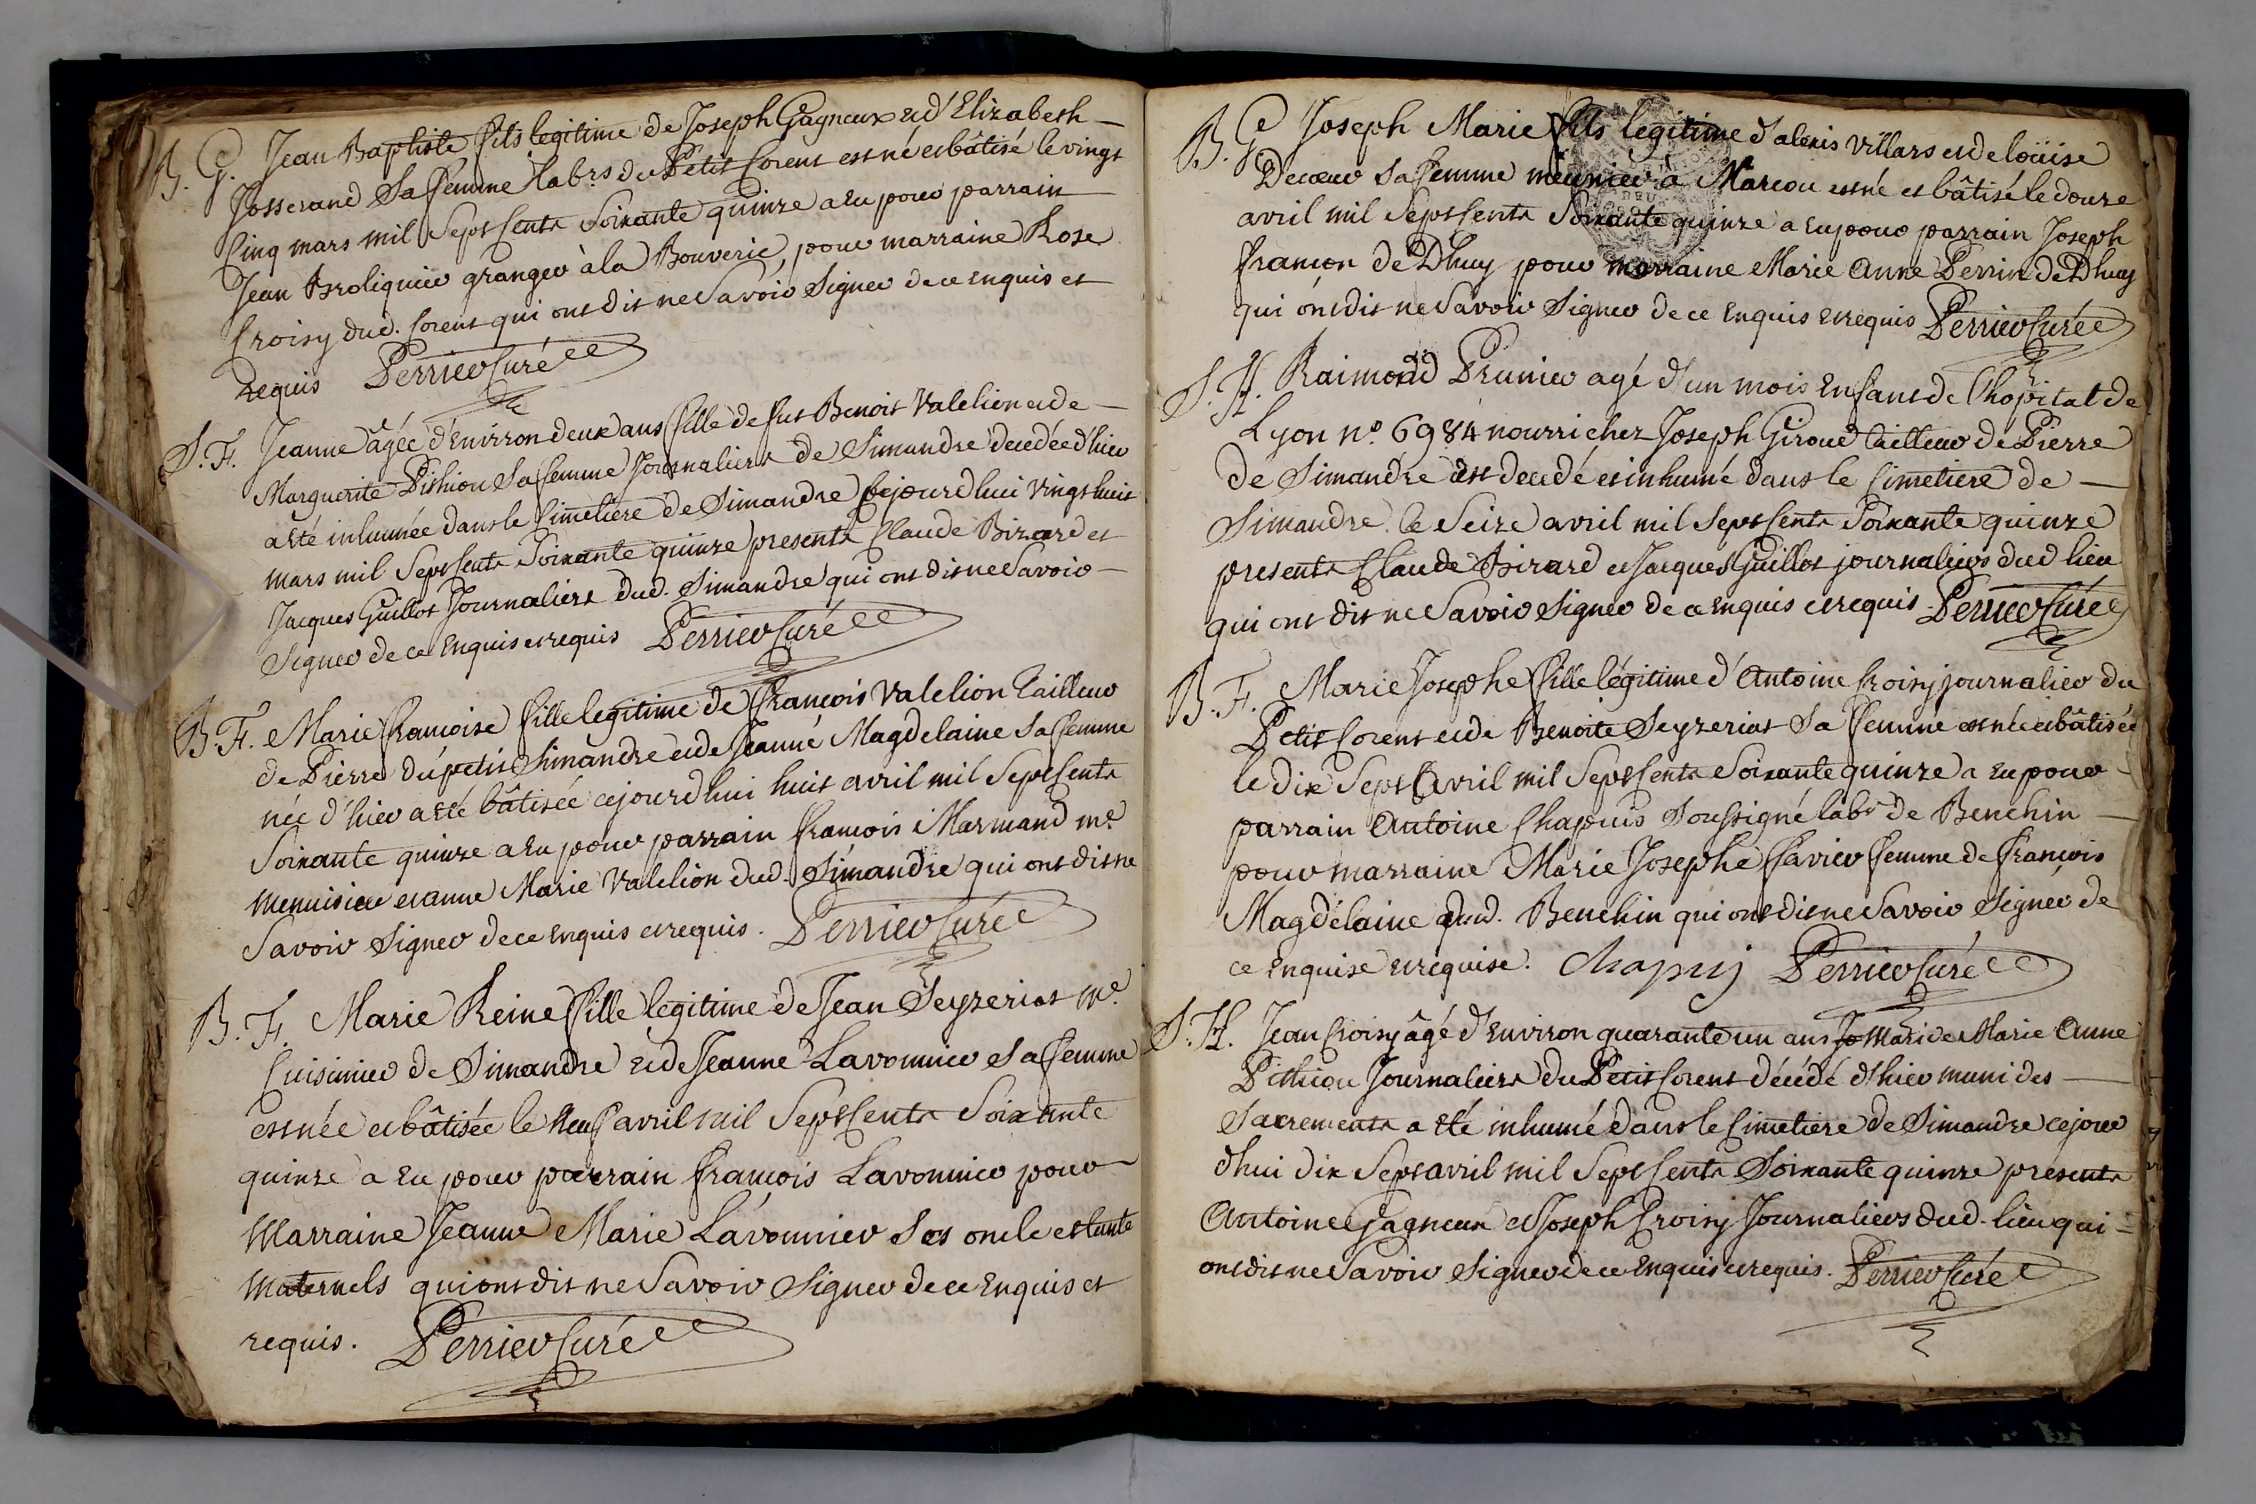 B. G. Jean Baptiste fils legitime de Joseph Gagneux et d'Elizabeth
Josserand Sa femme habts du Petit Corent est né et bâtisé le vingt
Cinq mars mil Sept Cents Soixante quinze a eu pour parrain
Jean Broliquier granger à la Bouverie, pour marraine Rose
Croisy dud. Corent qui ont dit ne Savoir Signer de ce Enquis et
requis Perrier Curé
S. F. Jeanne âgée d'Environ deux ans fille de fut Benoit Valelion et de
Marguerite Pithiou Sa femme Journaliers de Simandre decedée d'hier
a été inhumée dans le Cimetiere de Simandre cejourdhui Vingt huit
mars mil Sept Cents Soixante quinze presents Claude Birard et
Jacques Guillot Journaliers dud. Simandre qui ont dit ne Savoir
Signer de ce Enquis et requis Perrier Curé
B. F. Marie francoise fille legitime de francois Valelion Tailleur
de Pierre du petit Simandre et de Jeanne Magdelaine Sa femme
née d'hier a été bâtisée cejourdhui huit avril mil Sept Cents
Soixante quinze a eu pour parrain francois Marmand me
menuisier et anne Marie Valelion dud. Simandre qui ont dit ne
Savoir Signer de ce Enquis et requis. Perrier Curé
B. F. Marie Reine fille legitime de Jean Seyzeriat me
Cuisinier de Simandre et de Jeanne Lavonnier Sa femme
est née et bâtisée le neuf avril mil Sept Cents Soixante
quinze a eu pour parrain francois Lavonnier pour
Marraine Jeanne Marie Lavonnier Ses oncle et tante
Maternels qui ont dit ne Savoir Signer de ce Enquis et
requis. Perrier Curé
B. G. Joseph Marie fils legitime d'alexis Villars et de loüise
Decoeur Sa femme meunier à Marcou est né et bâtisé le douze
avril mil Sept Cents Soixante quinze a eu pour parrain Joseph
françon de Dhuy pour marraine Marie Anne Perrin de Dhuy
qui ont dit ne Savoir Signer de ce Enquis et requis Perrier Curé
S. H. Raimond Prunier agé d'un mois Enfant de l'hopital de
Lyon no. 6984 nourri chez Joseph Giroud tailleur de Pierre
de Simandre est decedé et inhumé dans le Cimetiere de
Simandre le Seize avril mil Sept Cents Soixante quinze
presents Claude Birard et Jacques Guillot journaliers dud lieu
qui ont dit ne Savoir Signer de ce Enquis et requis Perrier Curé
B. F. Marie Josephe fille légitime d'Antoine Croisy journalier du
Petit Corent et de Benoite Seyzeriat Sa femme est née et bâtisée
le dix Sept Avril mil Sept Cents Soixante quinze a eu pour
parrain Antoine Chapuis Soussigné labr de Benchin
pour marraine Marie Josephe Favier femme de francois
Magdelaine dud. Benchin qui ont dit ne Savoir Signer de
ce Enquise et requise. Chapuy Perrier Curé
S. H. Jean Croisy âgé d'Environ quarante un ans Mari de Marie Anne
Pithiou Journaliers du Petit Corent décédé d'hier muni des
Sacrements a été inhumé dans le Cimetiere de Simandre cejour
dhui dix Sept avril mil Sept Cents Soixante quinze presents
Antoine Gagneux et Joseph Croisy Journaliers dud. lieu qui
ont dit ne Savoir Signer de ce Enquis et requis. Perrier Curé